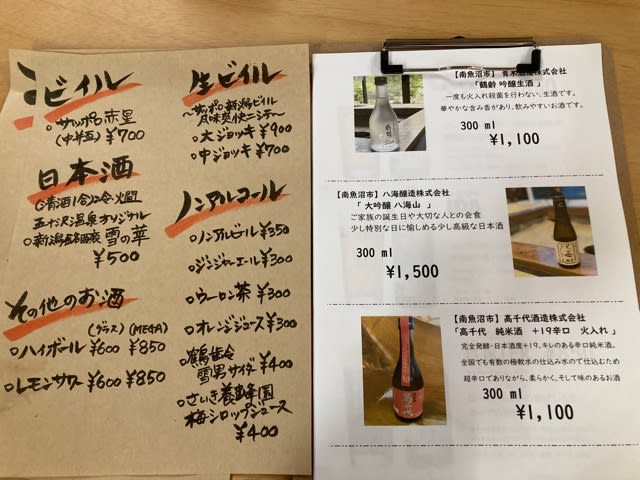 ビイル
○サッポロ赤星
(中井五) ¥700
日本酒
五十沢温泉オリジナル
雪の華
¥500
その他のお酒
(グラス)(MEGA)
○ハイボール ¥600 ¥850
○レモンサワー ¥600 ¥850
生ビイル
〜サッポロ新潟ビイル
風味爽快ニシテ〜
○大ジョッキ ¥900
○中ジョッキ ¥700
ノンアルコール
○ノンアルビール ¥350
○ジンジャーエール ¥300
○ウーロン茶 ¥300
○オレンジジュース ¥300
○鶴齢
雪男サイダー ¥400
○さいき養蜂園
梅シロップジュース
¥400
【南魚沼市】青木酒造株式会社
「鶴齢 吟醸生酒 」
一度も火入れ殺菌を行わない、生酒です。
華やかな含み香があり、飲みやすいお酒です。
300 ml
¥1,100
【南魚沼市】八海醸造株式会社
「 大吟醸 八海山 」
ご家族の誕生日や大切な人との会食
少し特別な日に愉しめる少し高級な日本酒
300 ml
¥1,500
【南魚沼市】高千代酒造株式会社
「高千代 純米酒 +19辛口 火入れ 」
完全発酵・日本酒度+19、キレのある辛口純米酒。
全国でも有数の極軟水の仕込み水で仕込むため
超辛口でありながら、柔らかく、そして味のあるお酒
300 ml
¥1,100